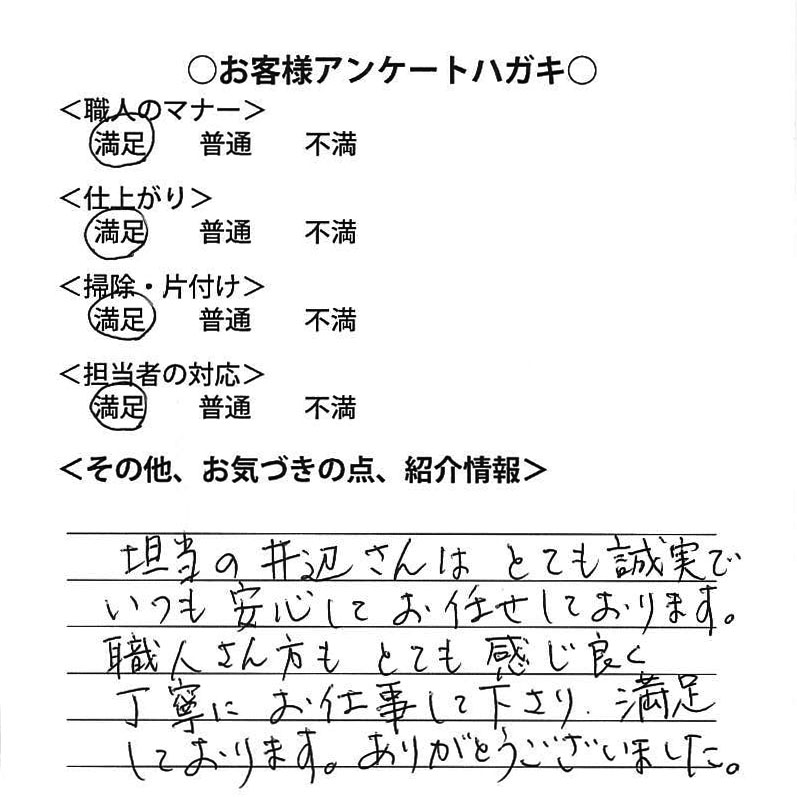 ○お客様アンケートハガキ○
＜職人のマナー＞
満足 普通 不満
＜仕上がり＞
満足 普通 不満
＜掃除・片付け＞
満足 普通 不満
＜担当者の対応＞
満足 普通 不満
＜その他、お気づきの点、紹介情報＞
担当の井辺さんは とても誠実で
いつも安心して お任せしております。
職人さん方も とても 感じ良く
丁寧に お仕事して下さり、満足
しております。ありがとうございました。